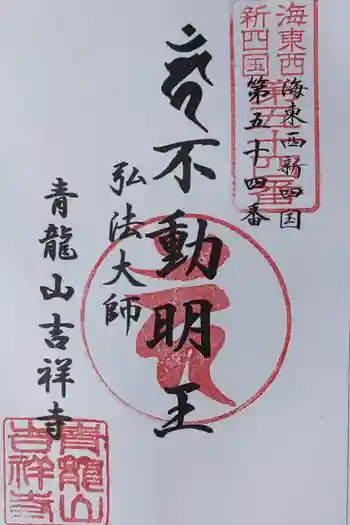 海東西新四国
第五十四番
海東西
新四国
第五十四番
不動明王
弘法大師
青龍山吉祥寺
青龍山
吉祥寺